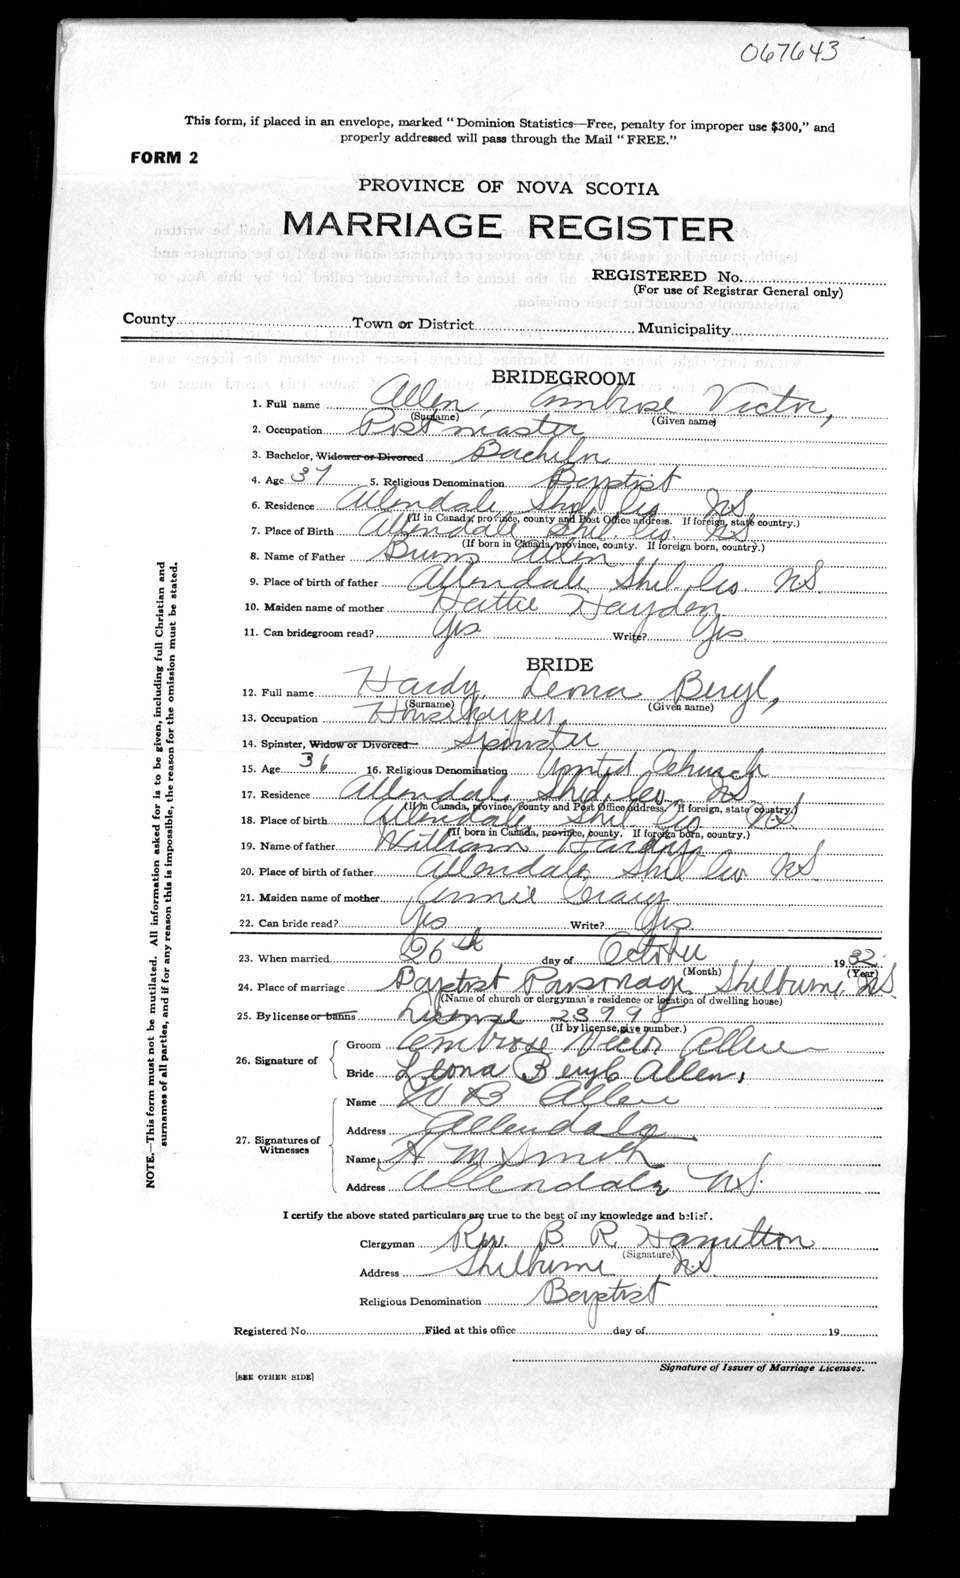 067643
This form, if placed in an envelope, marked "Dominion Statistics—Free, penalty for improper use $300," and
properly addressed will pass through the Mail "FREE."
FORM 2
PROVINCE OF NOVA SCOTIA
MARRIAGE REGISTER
REGISTERED No.
(For use of Registrar General only)
County Town or District Municipality
BRIDEGROOM
1. Full name Allen, Ambrose Victor,
(Surname) (Given name)
2. Occupation Postmaster
3. Bachelor, Widower or Divorced Bachelor
4. Age 37 5. Religious Denomination Baptist
6. Residence Allendale Shel. Co. NS
(If in Canada, province, county and Post Office address. If foreign, state country.)
7. Place of Birth Allendale Shel. Co. NS
(If born in Canada, province, county. If foreign born, country.)
8. Name of Father Allen
9. Place of birth of father Allendale Shel. Co. N.S.
10. Maiden name of mother Hattie Hayden
11. Can bridegroom read? Yes Write? Yes
BRIDE
12. Full name Hardy, Leona Beryl,
(Surname) (Given name)
13. Occupation Housekeeper,
14. Spinster, Widow or Divorced Spinster
15. Age 36 16. Religious Denomination United Church
17. Residence Allendale Shel. Co. NS
(If in Canada, province, county and Post Office address. If foreign, state country.)
18. Place of birth Allendale Shel Co NS
(If born in Canada, province, county. If foreign born, country.)
19. Name of father William Hardy
20. Place of birth of father Allendale Shel Co NS
21. Maiden name of mother Annie Craig
22. Can bride read? Yes Write? Yes
23. When married 26th day of October 1932
(Month) (Year)
24. Place of marriage Baptist Parsonage Shelburne, N.S.
(Name of church or clergyman's residence or location of dwelling house)
25. By license or banns License 23998
(If by license, give number.)
26. Signature of
Groom Ambrose Victor Allen
Bride Leona Beryl Allen.
27. Signatures of Witnesses
Name B Allen
Address Allendale
Name H M Smith
Address Allendale N.S.
I certify the above stated particulars are true to the best of my knowledge and belief.
Clergyman Rev. B. R. Hamilton
(Signature)
Address Shelburne N.S.
Religious Denomination Baptist
Registered No. Filed at this office day of 19
Signature of Issuer of Marriage Licenses.
[SEE OTHER SIDE]
NOTE.—This form must not be mutilated. All information asked for is to be given, including full Christian and
surnames of all parties, and if for any reason this is impossible, the reason for the omission must be stated.